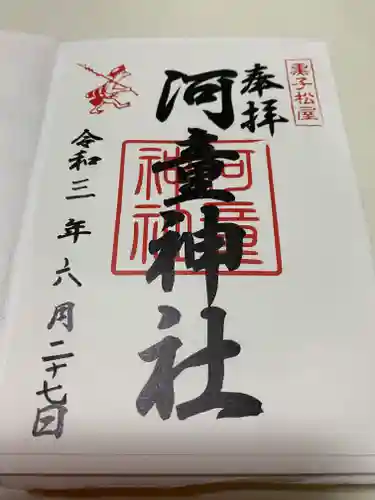 菓子松屋
奉拝
河童神社
河童神社
令和三年六月二十七日